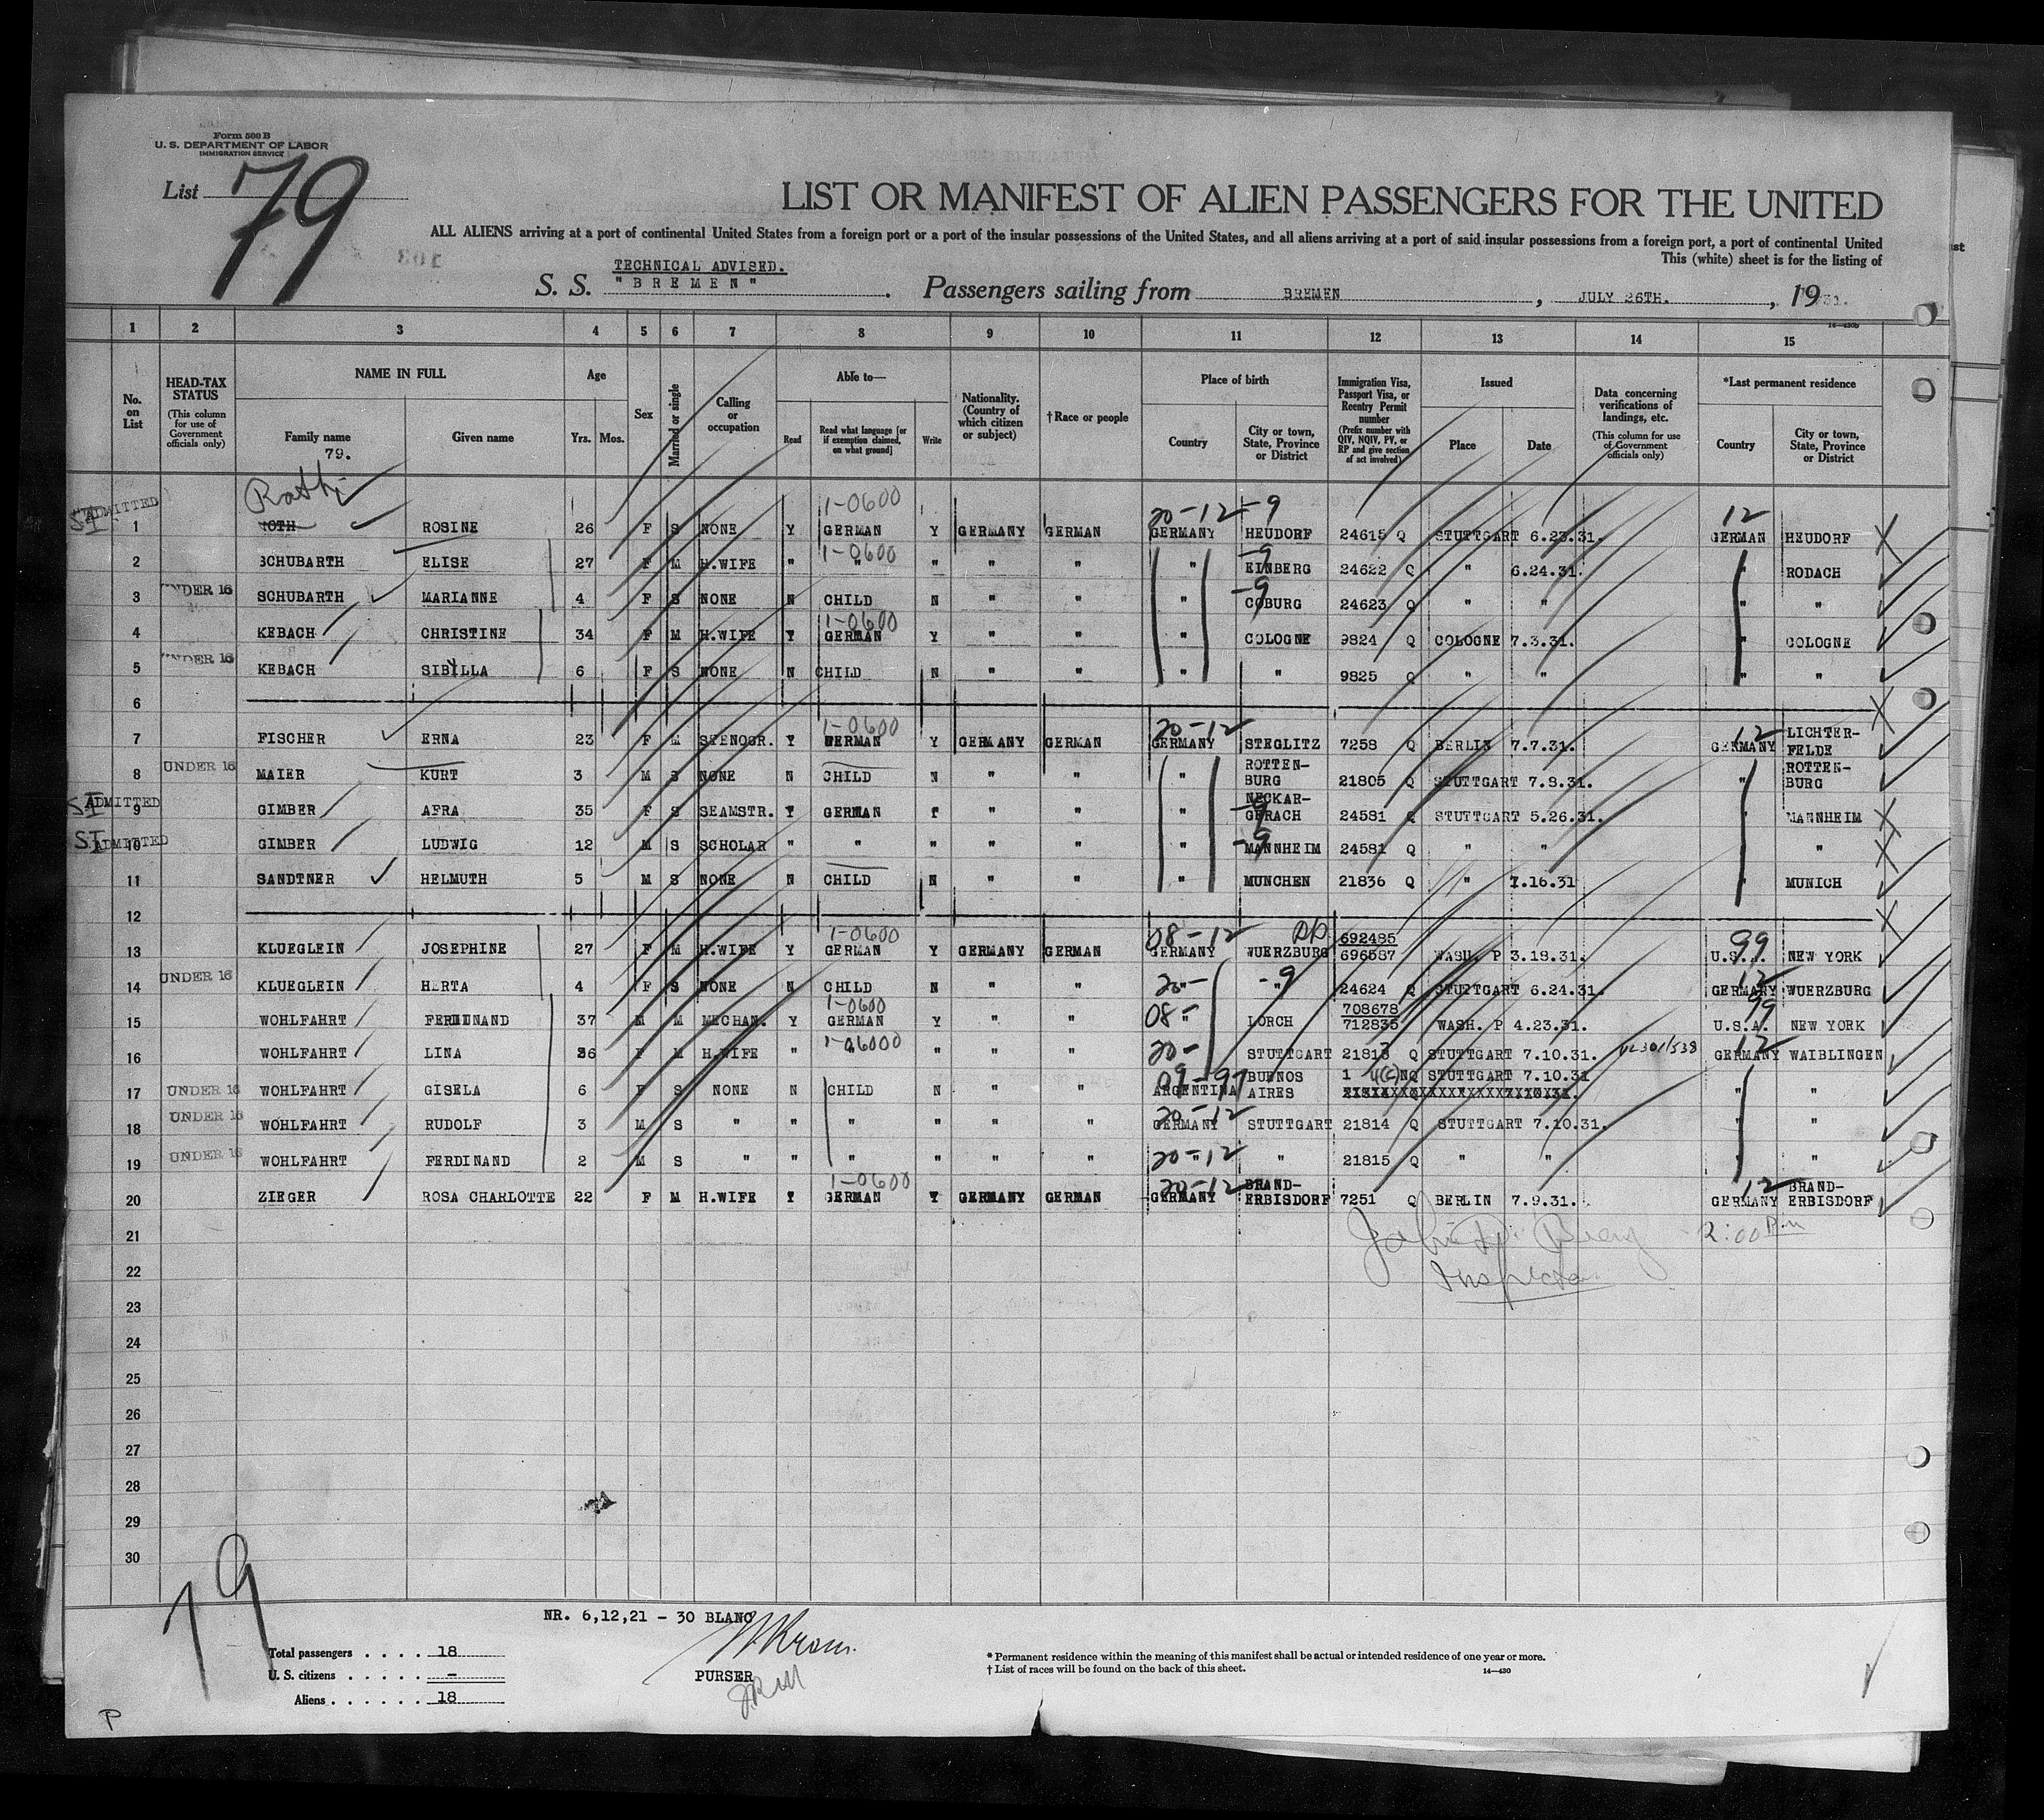 Form 500 B
U. S. DEPARTMENT OF LABOR
IMMIGRATION SERVICE
List 79
LIST OR MANIFEST OF ALIEN PASSENGERS FOR THE UNITED
ALL ALIENS arriving at a port of continental United States from a foreign port or a port of the insular possessions of the United States, and all aliens arriving at a port of said insular possessions from a foreign port, a port of continental United
This (white) sheet is for the listing of
TECHNICAL ADVISED.
S. S. "BREMEN". Passengers sailing from BREMEN, JULY 26TH., 1931.
14—430b
1 2 3 4 5 6 7 8 9 10 11 12 13 14 15
No. on List
HEAD-TAX STATUS (This column for use of Government officials only)
NAME IN FULL
Family name 79.
Given name
Age
Yrs. Mos.
Sex
Married or single
Calling or occupation
Able to—
Read
Read what language [or if exemption claimed, on what ground]
Write
Nationality. (Country of which citizen or subject)
† Race or people
Place of birth
Country
City or town, State, Province or District
Immigration Visa, Passport Visa, or Reentry Permit number (Prefix number with QIV, NQIV, PV, or RP and give section of act involved)
Issued
Place
Date
Data concerning verifications of landings, etc. (This column for use of Government officials only)
*Last permanent residence
Country
City or town, State, Province or District
1-0600 20-12 -9 12
SI ADMITTED 1 ROTH ROSINE 26 F S NONE Y GERMAN Y GERMANY GERMAN GERMANY HEUDORF 24615 Q STUTTGART 6.23.31. GERMAN HEUDORF
1-0600 -9
2 SCHUBARTH ELISE 27 F M H.WIFE " " " " " " EINBERG 24622 Q " 6.24.31. " RODACH
UNDER 16 -9
3 SCHUBARTH MARIANNE 4 F S NONE N CHILD N " " " COBURG 24623 Q " " " "
1-0600
4 KEBACH CHRISTINE 34 F M H.WIFE Y GERMAN Y " " " COLOGNE 9824 Q COLOGNE 7.3.31. " COLOGNE
UNDER 16
5 KEBACH SIBYLLA 6 F S NONE N CHILD N " " " " 9825 Q " " " "
6
1-0600 20-12 12
7 FISCHER ERNA 23 F M STENOGR. Y GERMAN Y GERMANY GERMAN GERMANY STEGLITZ 7258 Q BERLIN 7.7.31. GERMANY LICHTER-FELDE
UNDER 16
8 MAIER KURT 3 M S NONE N CHILD N " " " ROTTEN-BURG 21805 Q STUTTGART 7.8.31. " ROTTEN-BURG
SI ADMITTED -9
9 GIMBER AFRA 35 F S SEAMSTR. Y GERMAN Y " " " NECKAR-GERACH 24581 Q STUTTGART 5.26.31. " MANNHEIM
SI ADMITTED -9
10 GIMBER LUDWIG 12 M S SCHOLAR " " " " " " MANNHEIM 24581 Q " " " "
11 SANDTNER HELMUTH 5 M S NONE N CHILD N " " " MUNCHEN 21836 Q " 7.16.31 " MUNICH
12
1-0600 08-12 692485 99
13 KLUEGLEIN JOSEPHINE 27 F M H.WIFE Y GERMAN Y GERMANY GERMAN GERMANY WUERZBURG 696587 WASH. P 3.18.31. U.S.A. NEW YORK
UNDER 16 20- -9 12
14 KLUEGLEIN HERTA 4 F S NONE N CHILD N " " " " 24624 Q STUTTGART 6.24.31. GERMANY WUERZBURG
1-0600 08- 708678 99
15 WOHLFAHRT FERDINAND 37 M M MECHAN. Y GERMAN Y " " " LORCH 712835 WASH. P 4.23.31. U.S.A. NEW YORK
1-06000 20- 12
16 WOHLFAHRT LINA 36 F M H.WIFE " " " " " STUTTGART 21813 Q STUTTGART 7.10.31. GERMANY WAIBLINGEN
UNDER 16 09-97
17 WOHLFAHRT GISELA 6 F S NONE N CHILD N " " ARGENTINA BUENOS AIRES 1 4(c)NQ STUTTGART 7.10.31 " "
UNDER 16 20-12
18 WOHLFAHRT RUDOLF 3 M S " " " " " " GERMANY STUTTGART 21814 Q STUTTGART 7.10.31. " "
UNDER 16 20-12
19 WOHLFAHRT FERDINAND 2 M S " " " " " " " " 21815 Q " " " "
1-0600 20-12 12
20 ZIEGER ROSA CHARLOTTE 22 F M H.WIFE Y GERMAN Y GERMANY GERMAN GERMANY BRAND-ERBISDORF 7251 Q BERLIN 7.9.31. GERMANY BRAND-ERBISDORF
21 2:00 Pm
22 Inspector
23
24
25
26
27
28
29
30
79
NR. 6,12,21 - 30 BLANC
Total passengers . . . . 18
U. S. citizens . . . . . -
Aliens . . . . . . 18
PURSER
JRM
* Permanent residence within the meaning of this manifest shall be actual or intended residence of one year or more.
† List of races will be found on the back of this sheet.
14—430
P